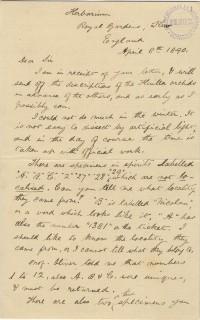 Herbarium
Royal Gardens, Kew
England
April 8th 1890.
Dear Sir
I am in receipt of your letter, & will
send off the descriptions of the orchids
in advance of the others, and as early as I
possibly can.
I could not do much in the winter. It
is not easy to dissect by artificial light,
and in the day of course the time is
taken up with official work.
There are specimens in spirits labelled
"A" "B" "C" "2" "27" "28" "29" which are not lo-
calised. Can you tell me what locality
they came from? "B" is labelled
or a word which looks like it, "A" has
also the number "1381" on the ticket. I
should like to know the locality they
came from, as I cannot tell what they belong to.
Oliver told me that numbers
1 to 12, also A. B & C. were unique,
& must be returned.
There are also two other specimens you